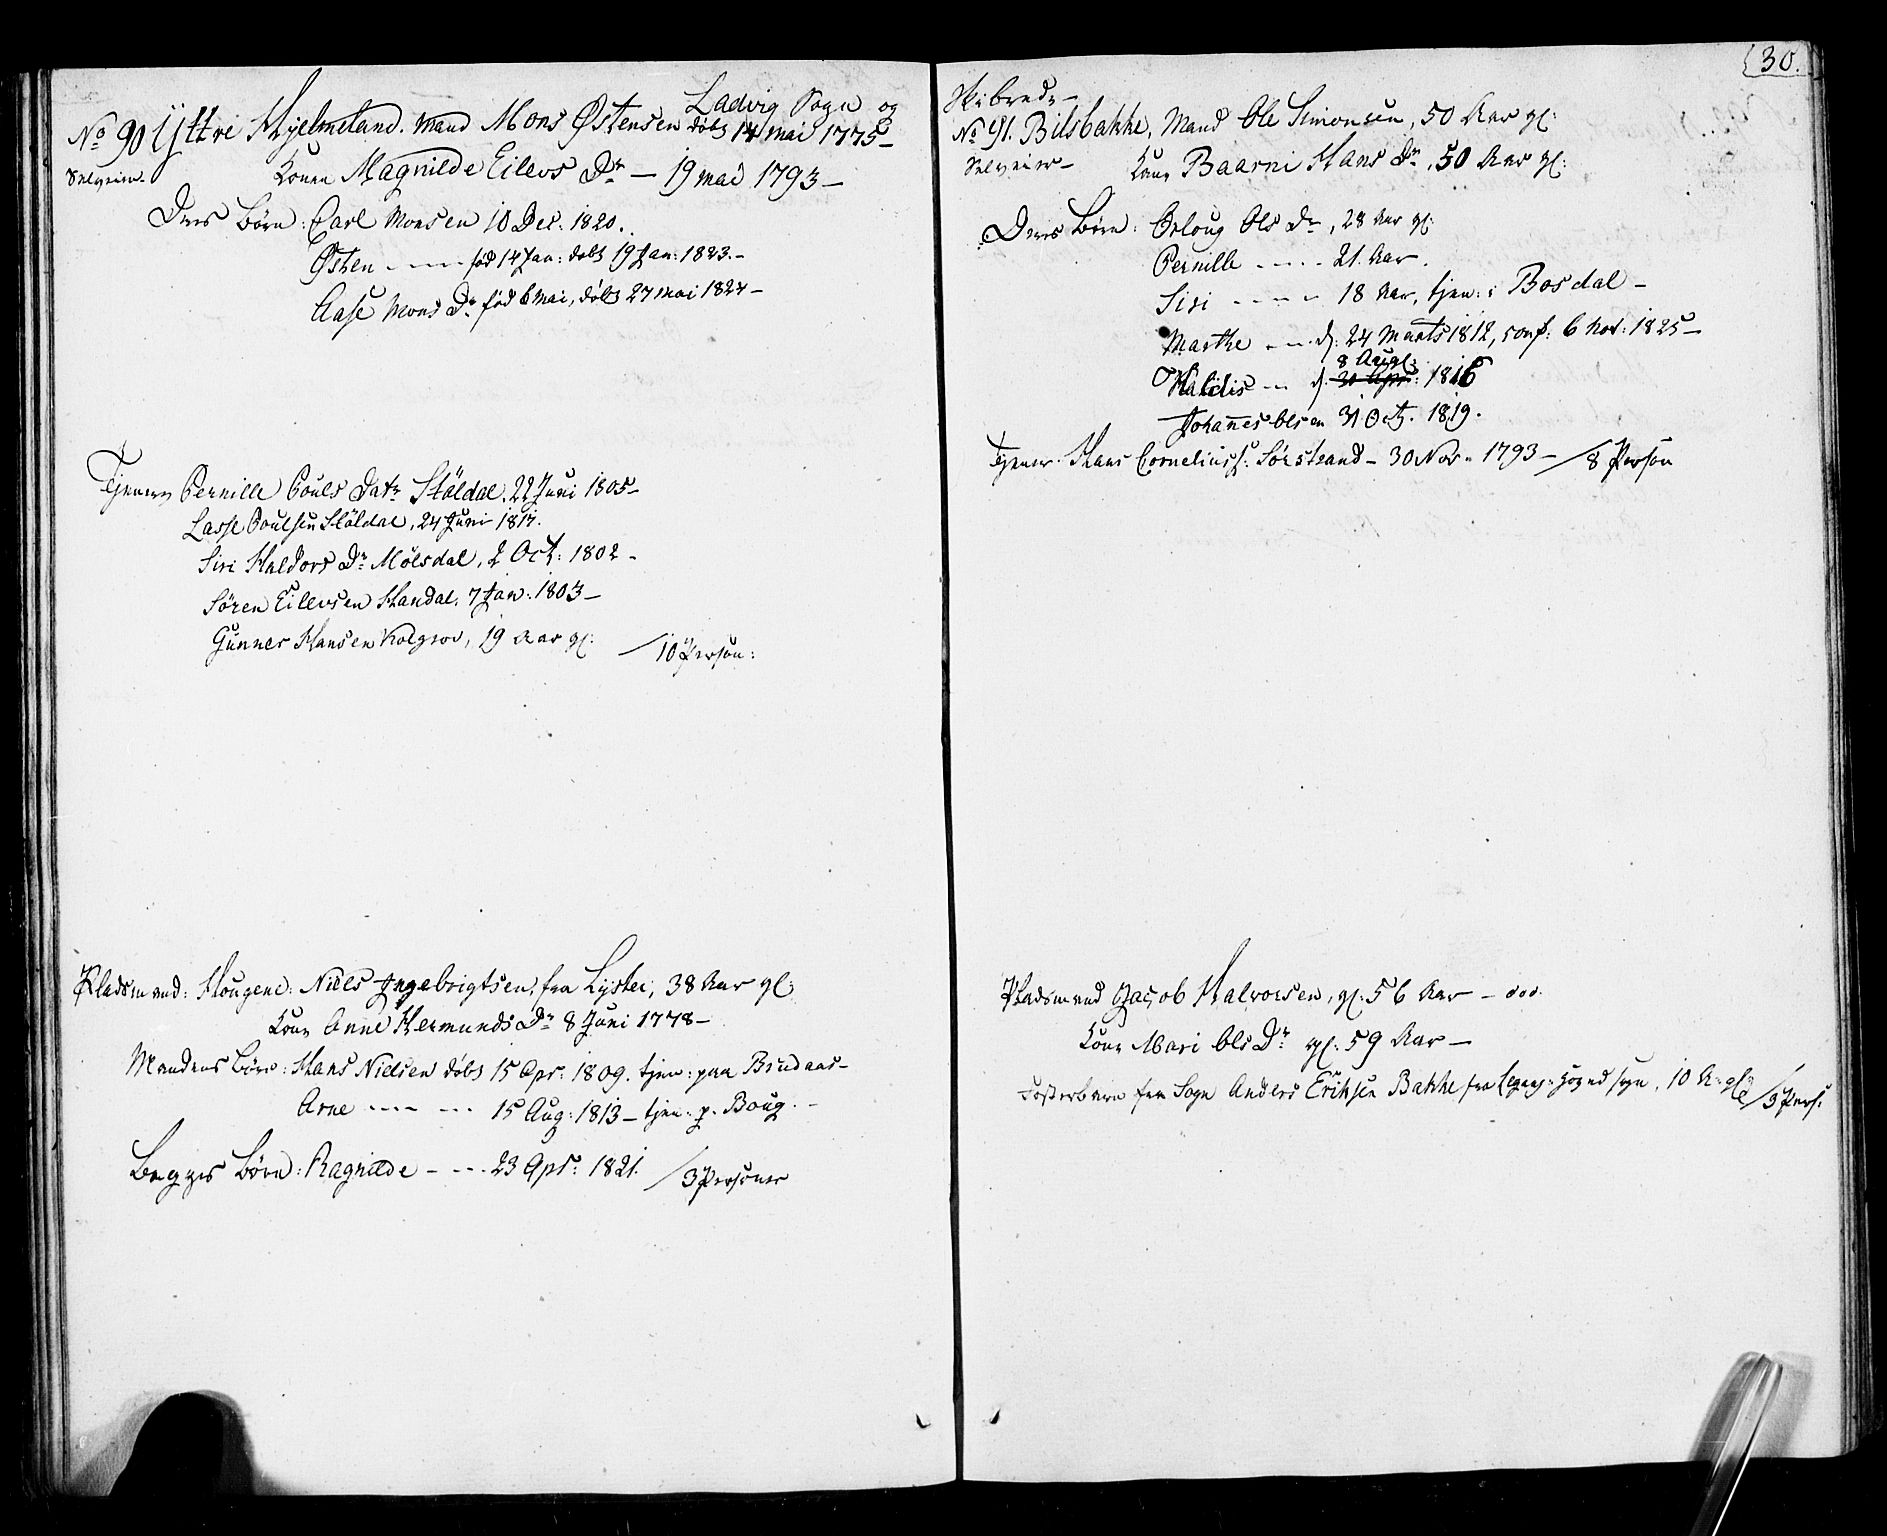 Ladvig Sogn og
No 90 Yttre Hjelmeland. Mand Mons Østensen døbt 14 mai 1775 –
Selveier.
Kone Magnilde Eilevs Dr – 19 mai 1793 –
Deres Børn: Carl Monsen 10 Dec: 1820.
Østen - - - - fød 14 Jan: døbt 19 Jan: 1823. –
Aase Mons Dr fød 6 mai, døbt 27 mai 1824 –
Tjenere Pernille Pouls Datr Støldal. 22 Juni 1805 –
Lasse Poulsen Støldal, 24 Juni 1811.
Siri Haldors Dr Mölsdal, 2 Oct: 1802 –
Sören Eilevsen Handal. 7 Jan: 1803 –
Gunner Hansen Kolgrov, 19 Aar gl: / 10 Person:
Pladsmand: Hougene: Niels Ingebrigtsen, fra Lyster, 38 Aar gl:
Kone Anne Hermunds Dr 8 Juni 1778 –
Mandens Børn: Hans Nielsen døbt 15 Apr: 1809. tjen: paa
Arne - - - - - - 15 Aug: 1813 – tjen: p. Boug. –
Begges Børn: Ragnilde - - - 23 Apr: 1821. / 3 Personer
30.
Skibrede –
No 91. Bilsbakke, Mand Ole Simonsen, 50 Aar gl:
Selveier –
Kone Baarni Hans Dr, 50 Aar gl:
Deres Børn: Orloug Ols Dr, 28 Aar gl:
Pernille - - - - 21. Aar.
Siri - - - - 18 Aar, tjen: i Bosdal –
Marthe - - - d: 24 Marts 1812, conf: 6 Nov: 1825 –
8 Augl:
Haldis - - d. 30 Apr: 1816
Johannes Olsen 31 Oct. 1819.
Tjener. Hans Corneliuss: Sørstrand – 30 Nov. 1793 – / 8 Person
Pladsmand Jacob Halvorsen, gl: 56 Aar –
Kone Mari Ols Dr gl: 59 Aar –
Fosterbarn fra Sogn Anders Eriksen Bakke fra sogn, 10 A: gl: / 3 Pers: